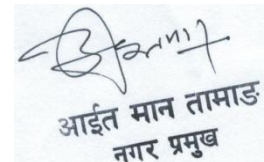 आईत मान तामाङ
नगर प्रमुख